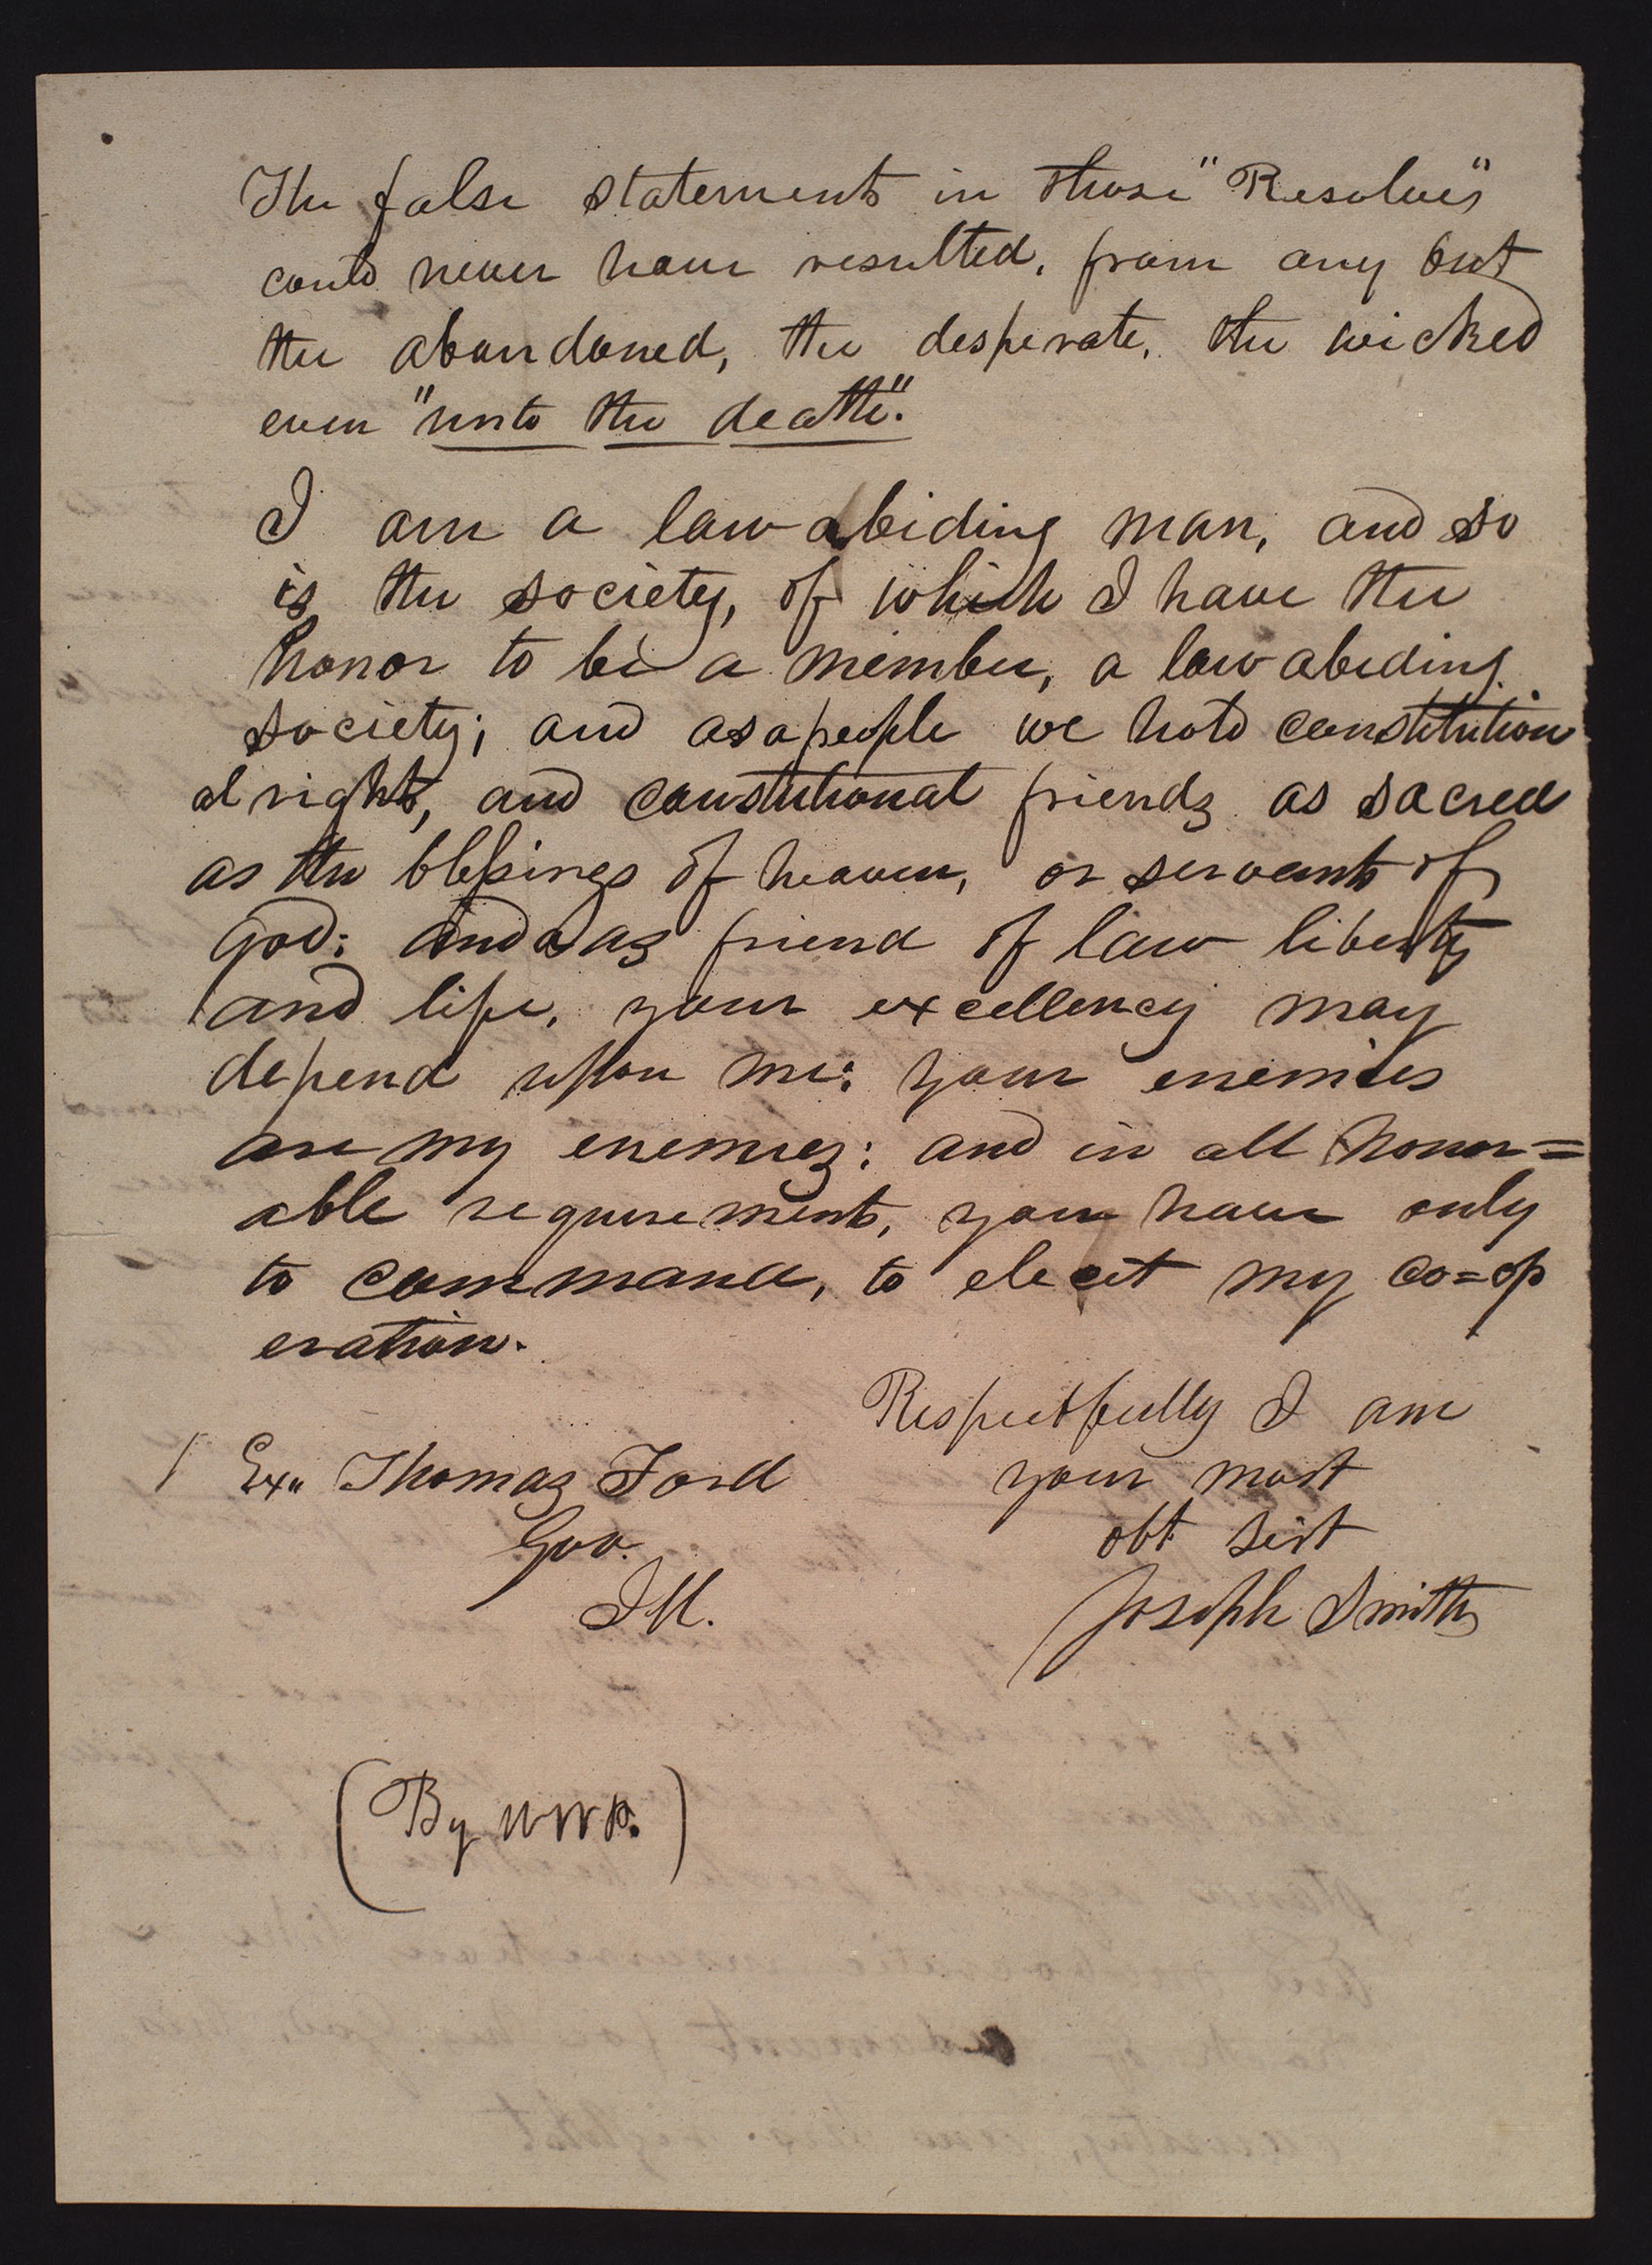 The false statements in those "Resolves"
could never have resulted, from any but
the abandoned, the desperate, the wicked
even "unto the death".
I am a law abiding man, and so
is the society, of which I have the
honor to be a member, a law abiding
society; and as a people we hold constitution
al rights, and constutional friends as sacred
as the blessings of heaven, or servants of
God: And as friend of law liberty
and life, your excellency may
depend upon me: your enemies
are my enemies: and in all honor=
able requirements, you have only
to command, to elect my co=op
eration.
Respectfully I am
your most
obt sert
Joseph Smith
Exn Thomas Ford
Gov.
Ill.
(By WWP.)